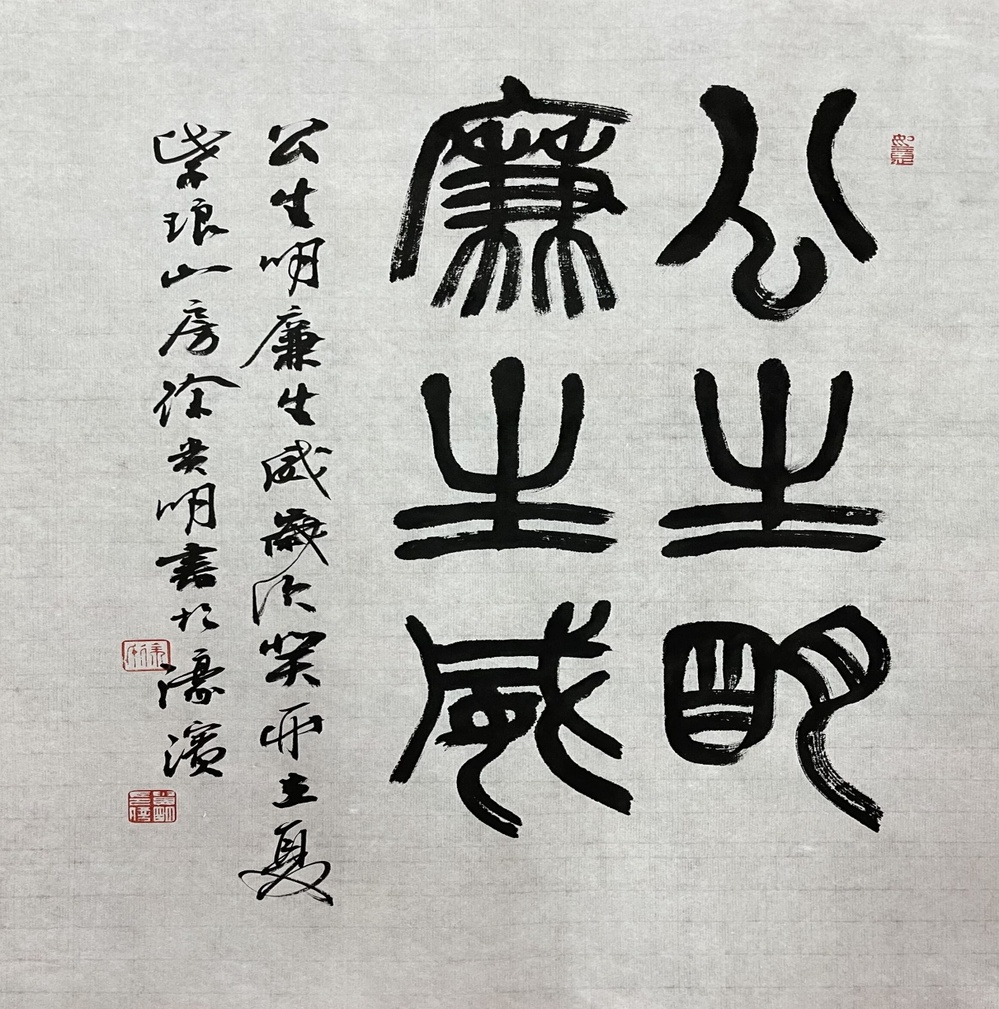 公生明
廉生威
公生明廉生威歲次癸卯立夏
紫琅山房徐貴明書於濠濱